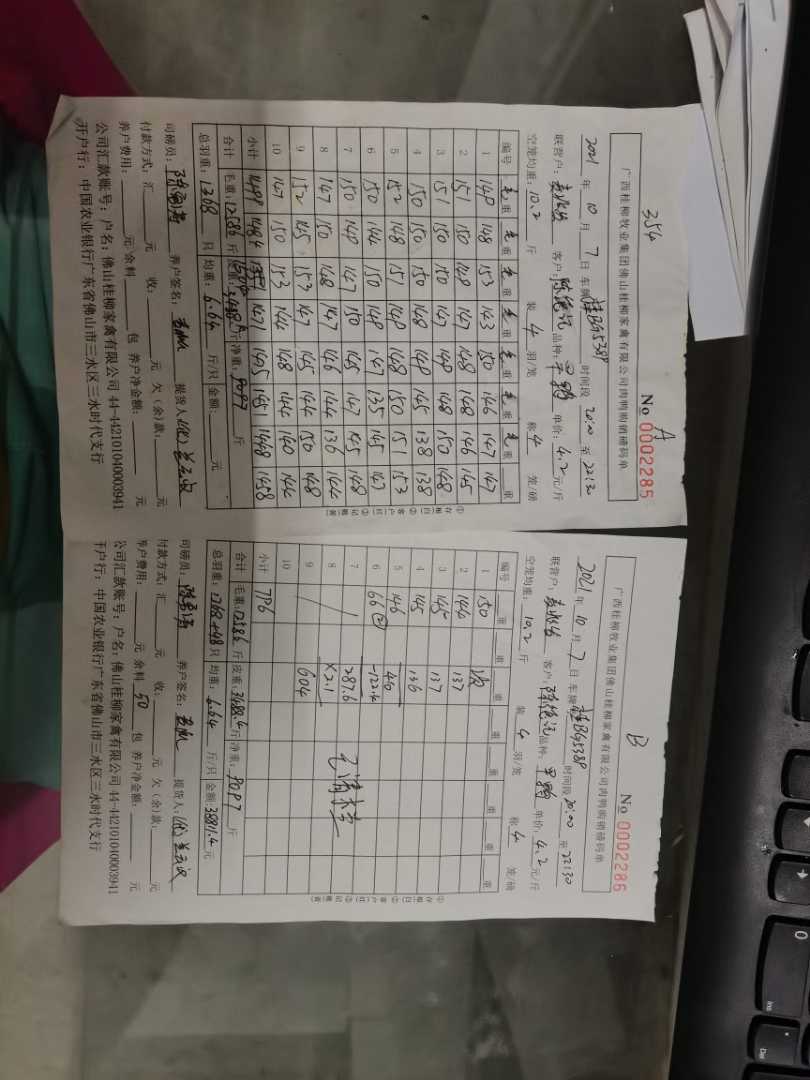 354
A
广西桂柳牧业集团佛山桂柳家禽有限公司肉鸭购销磅码单
№ 0002285
2021 年 10 月 7 日 车牌 桂BG5389 时间段 20:00 至 22:30
联营户: 客户: 品种: 单价: 4.2 元/斤
空笼均重: 10.2 斤 装 4 羽/笼 称 4 笼/磅
编号 毛重 毛重 毛重 毛重 毛重 毛重 毛重 重
1 149 148 153 143 150 146 147 147
2 151 150 149 147 148 148 146 145
3 151 150 150 147 149 148 150 148
4 150 150 150 148 149 145 138 138
5 152 148 151 149 148 150 151 153
6 150 144 150 149 147 135 145 147
7 150 149 147 150 145 147 145 148
8 147 150 148 147 146 144 136 144
9 152 145 153 147 145 144 150 148
10 147 150 153 144 148 144 140 144
小计 1499 1484 1471 1475 1451 1448 1458
合计 毛重: 12586 斤 皮重: 斤 净重: 9097 斤
总羽重: 1368 只 均重: 6.64 斤/只 金额: 元
司磅员: 养户签名: 提货人:
付款方式: 汇 元 收: 元 欠(余)款: 元
养户费用: 元 余料 包 养户净金额: 元
公司汇款账号: 户名: 佛山桂柳家禽有限公司 44-442101040003941
开户行: 中国农业银行广东省佛山市三水区三水时代支行
①存根白 ②客户红 ③记账黄
B
广西桂柳牧业集团佛山桂柳家禽有限公司肉鸭购销磅码单
№ 0002286
2021 年 10 月 7 日 车牌 桂BG5389 时间段 20:00 至 22:30
联营户: 客户: 品种: 单价: 4.2 元/斤
空笼均重: 10.2 斤 装 4 羽/笼 称 4 笼/磅
编号 重 重 重 重 重 重 重
1 150
2 144 137
3 145 137
4 145 136
5 146 46
6 66② -122.4
7 287.6
8 ×2.1
9 604
10
小计 796
合计 毛重: 12586 斤 皮重: 3488.4 斤 净重: 9097 斤
总羽重: 1368+48 只 均重: 6.64 斤/只 金额: 38811.4 元
司磅员: 养户签名: 提货人:
付款方式: 汇 元 收: 元 欠(余)款: 元
养户费用: 元 余料 50 包 养户净金额: 元
公司汇款账号: 户名: 佛山桂柳家禽有限公司 44-442101040003941
开户行: 中国农业银行广东省佛山市三水区三水时代支行
①存根白 ②客户红 ③记账黄
0
Ins
Del